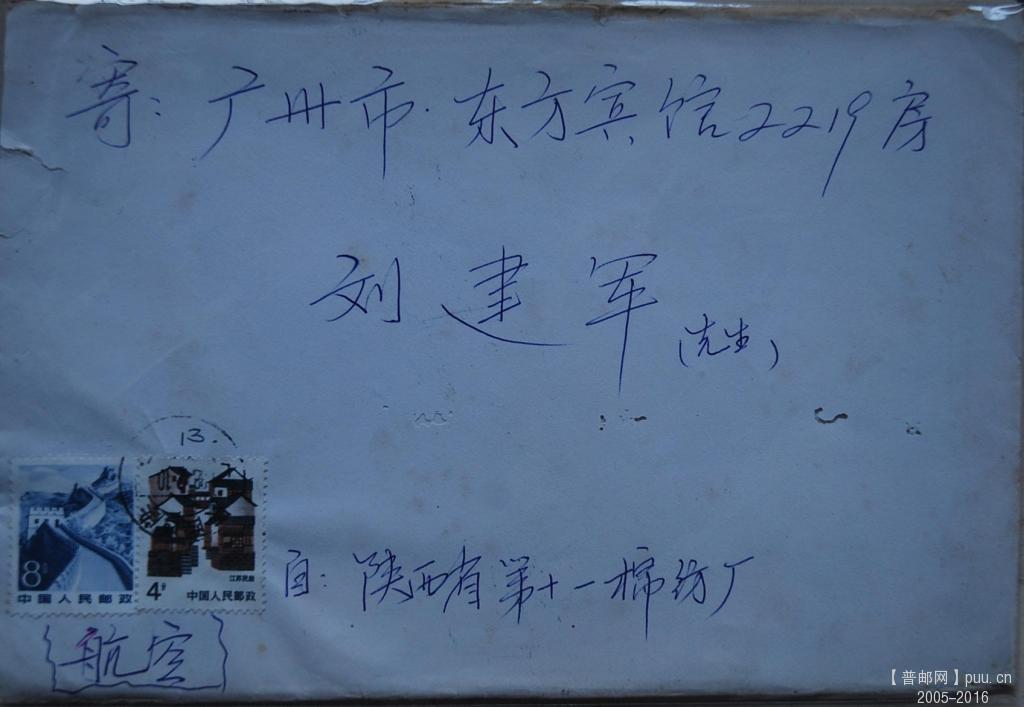 寄：广州市·东方宾馆2219房
刘建军(先生)
13.
8分
中国人民邮政
江苏民居
4分
中国人民邮政
自：陕西省第十一棉纺厂
航空
【普邮网】puu.cn
2005-2016